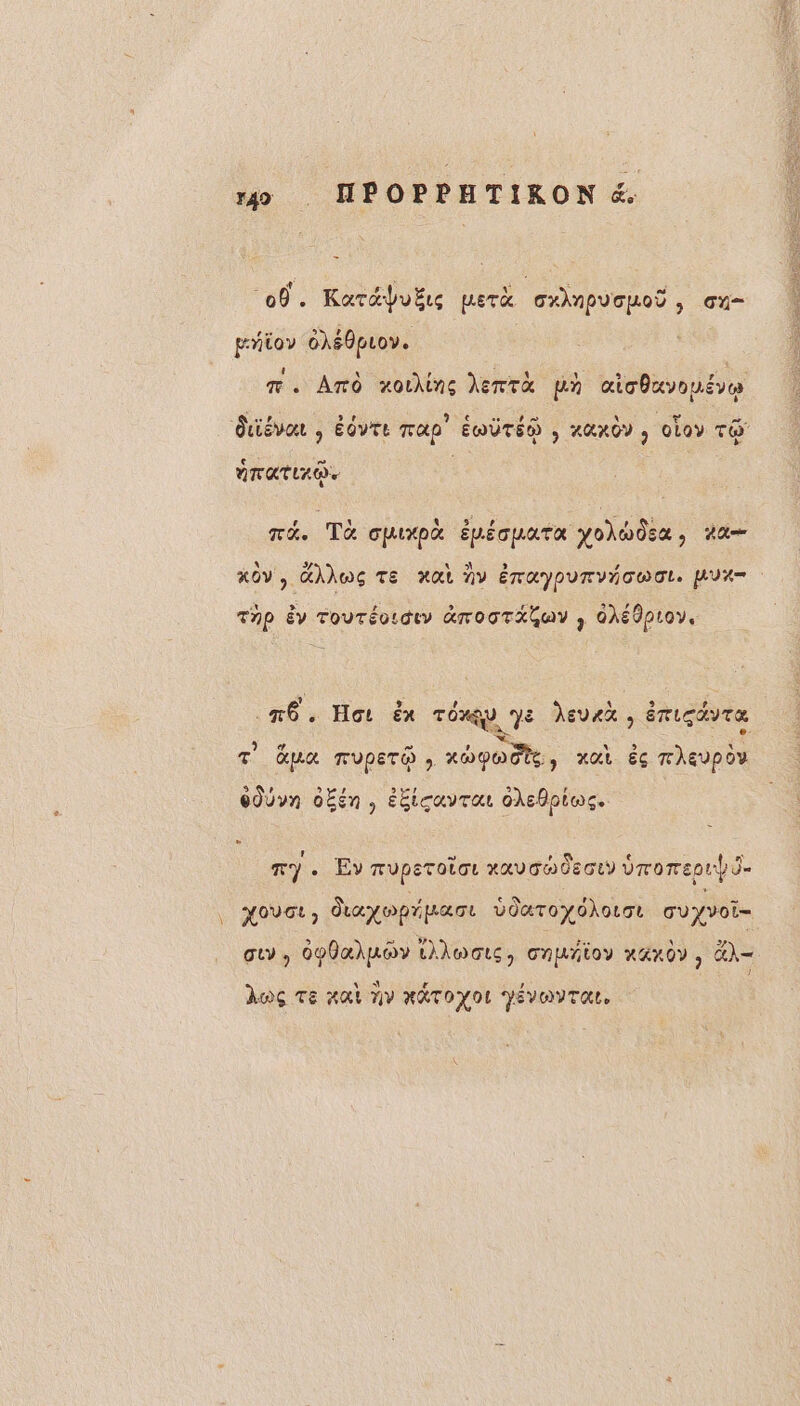 140 ΠΡΟΡΡΗΤΙΚΟΝ ά.
οθ΄. Κατάψυξις μετὰ σκληρυσμοῦ, ση-
μήϊον ὀλέθριον.
π΄. Απὸ κοιλίης λεπτὰ μὴ αἰσθανομένῳ
διϊέναι, ἐόντι παρ' ἑωϋτέῷ, κακὸν, οἷον τῷ
ἡπατικῷ.
πά. Τὰ σμικρὰ ἐμέσματα χολώδεα, κα-
κὸν, ἄλλως τε καὶ ἢν ἐπαγρυπνήσωσι. μυκ-
τὴρ ἐν τουτέοισιν ἀποστάζων, ὀλέθριον.
πϐ΄. Ησι ἐκ τόκου γε λευκὰ, ἐπιϛάντα
τ' ἅμα πυρετῷ, κώφωσις, καὶ ἐς πλευρὸν
ὀδύνη ὀξέη, ἐξίϛανται ὀλεθρίως.
πγ΄. Εν πυρετοῖσι καυσώδεσιν ὑποπεριψύ-
χουσι, διαχωρήμασι ὑδατοχόλοισι συχνοῖ-
σιν, ὀφθαλμῶν ἴλλωσις, σημήϊον κακὸν, ἄλ-
λως τε καὶ ἢν κάτοχοι γένωνται.